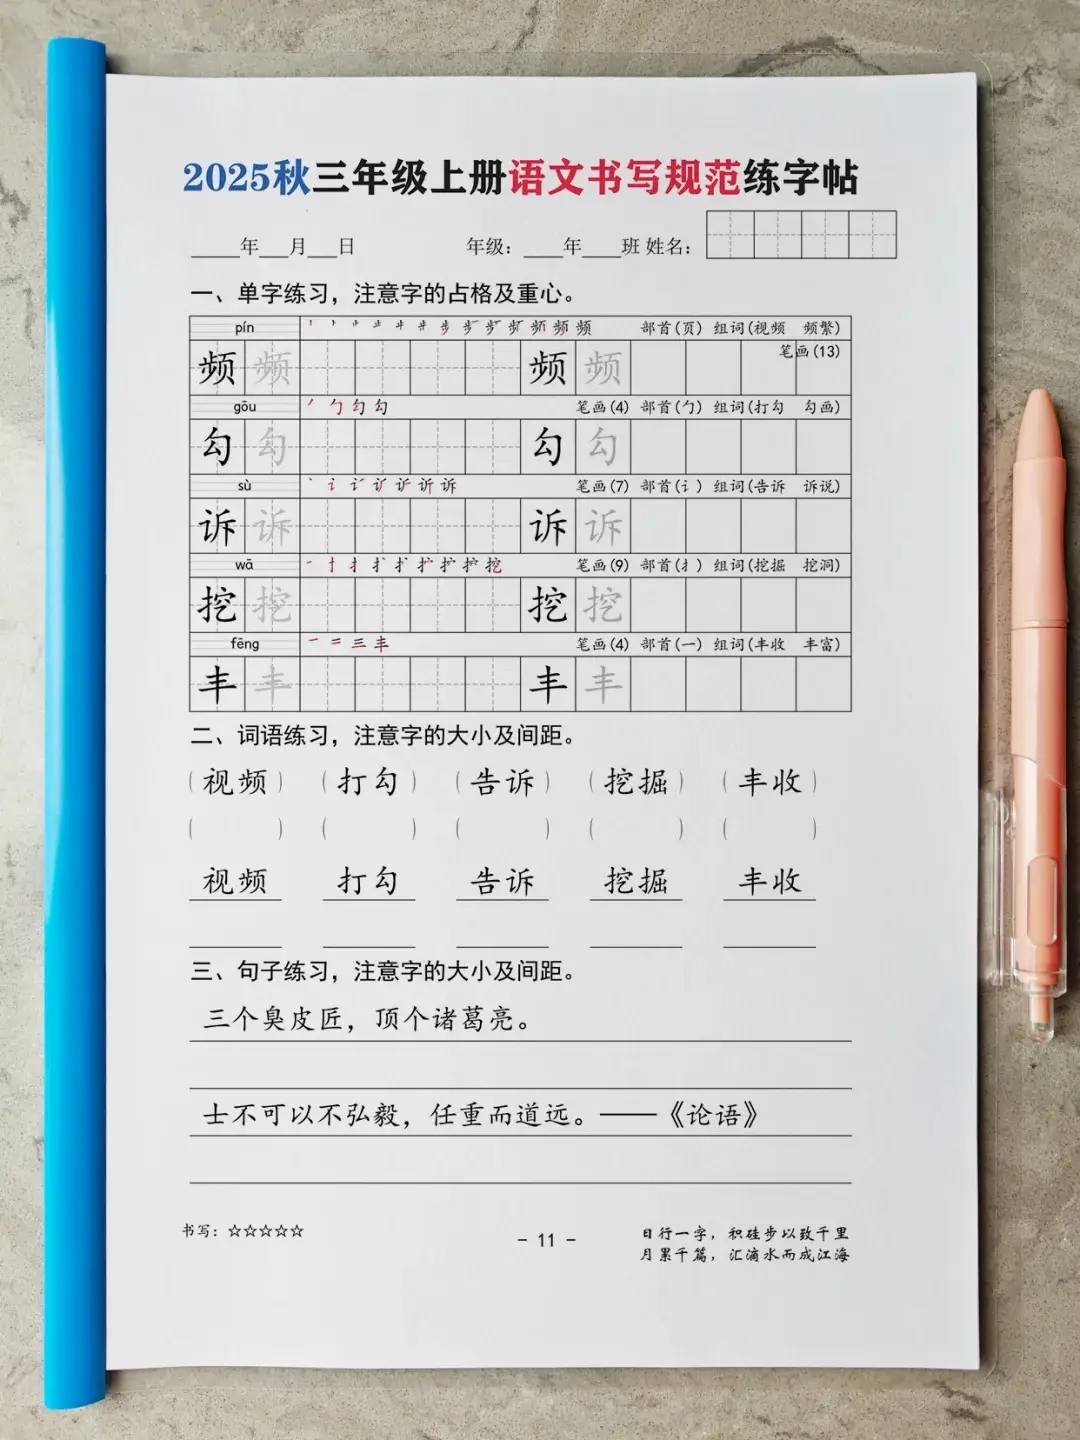 2025秋三年级上册语文书写规范练字帖
____年___月___日 年级：____年____班 姓名：
一、单字练习，注意字的占格及重心。
pín 部首(页) 组词(视频 频繁)
笔画(13)
频 频 频 频
gōu 笔画(4) 部首(勹) 组词(打勾 勾画)
勾 勾 勾 勾
sù 笔画(7) 部首(讠) 组词(告诉 诉说)
诉 诉 诉 诉
wā 笔画(9) 部首(扌) 组词(挖掘 挖洞)
挖 挖 挖 挖
fēng 笔画(4) 部首(一) 组词(丰收 丰富)
丰 丰 丰 丰
二、词语练习，注意字的大小及间距。
(视频) (打勾) (告诉) (挖掘) (丰收)
( ) ( ) ( ) ( ) ( )
视频 打勾 告诉 挖掘 丰收
三、句子练习，注意字的大小及间距。
三个臭皮匠，顶个诸葛亮。
士不可以不弘毅，任重而道远。——《论语》
书写：☆☆☆☆☆
- 11 -
日行一字，积硅步以致千里
月累千篇，汇滴水而成江海